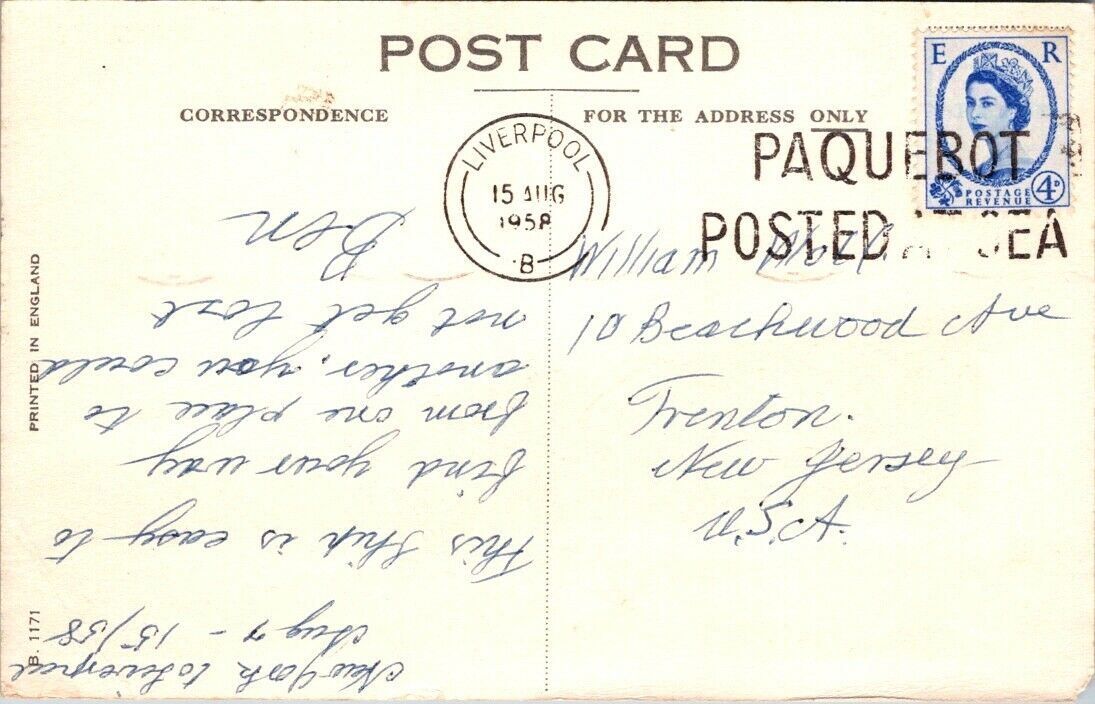 POST CARD
CORRESPONDENCE
FOR THE ADDRESS ONLY
E R
POSTAGE
REVENUE
4D
LIVERPOOL
15 AUG
1958
B
PAQUEBOT
POSTED AT SEA
New York to Liverpool
Aug 7 - 15/58
This Ship is easy to
find your way
from one place to
another, you could
not get lost
Ben
William
10 Beachwood Ave
Trenton.
New Jersey
U.S.A.
PRINTED IN ENGLAND
B. 1171